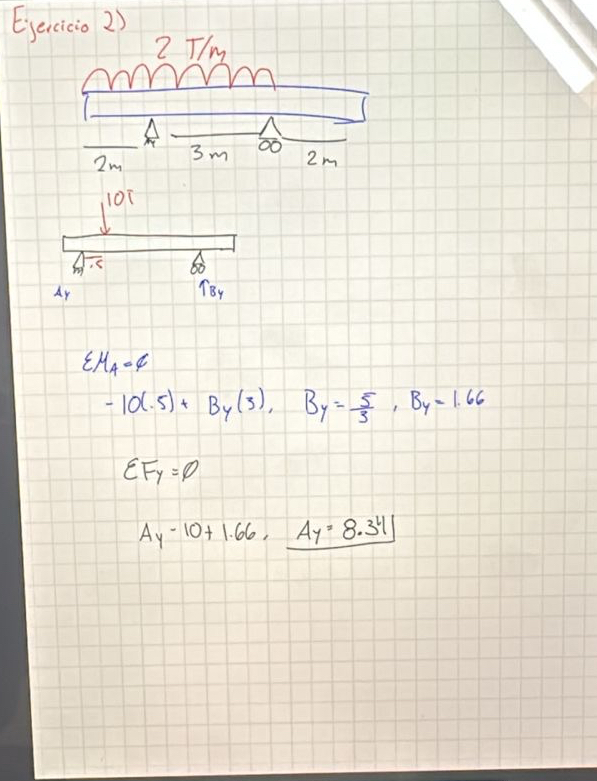 Ejercicio 2)
2 T/m
2m 3m 2m
10T
.5
Ay ↑By
ΣMA=∅
-10(.5)+ By(3), By=5/3, By=1.66
ΣFy=∅
Ay-10+1.66, Ay=8.34